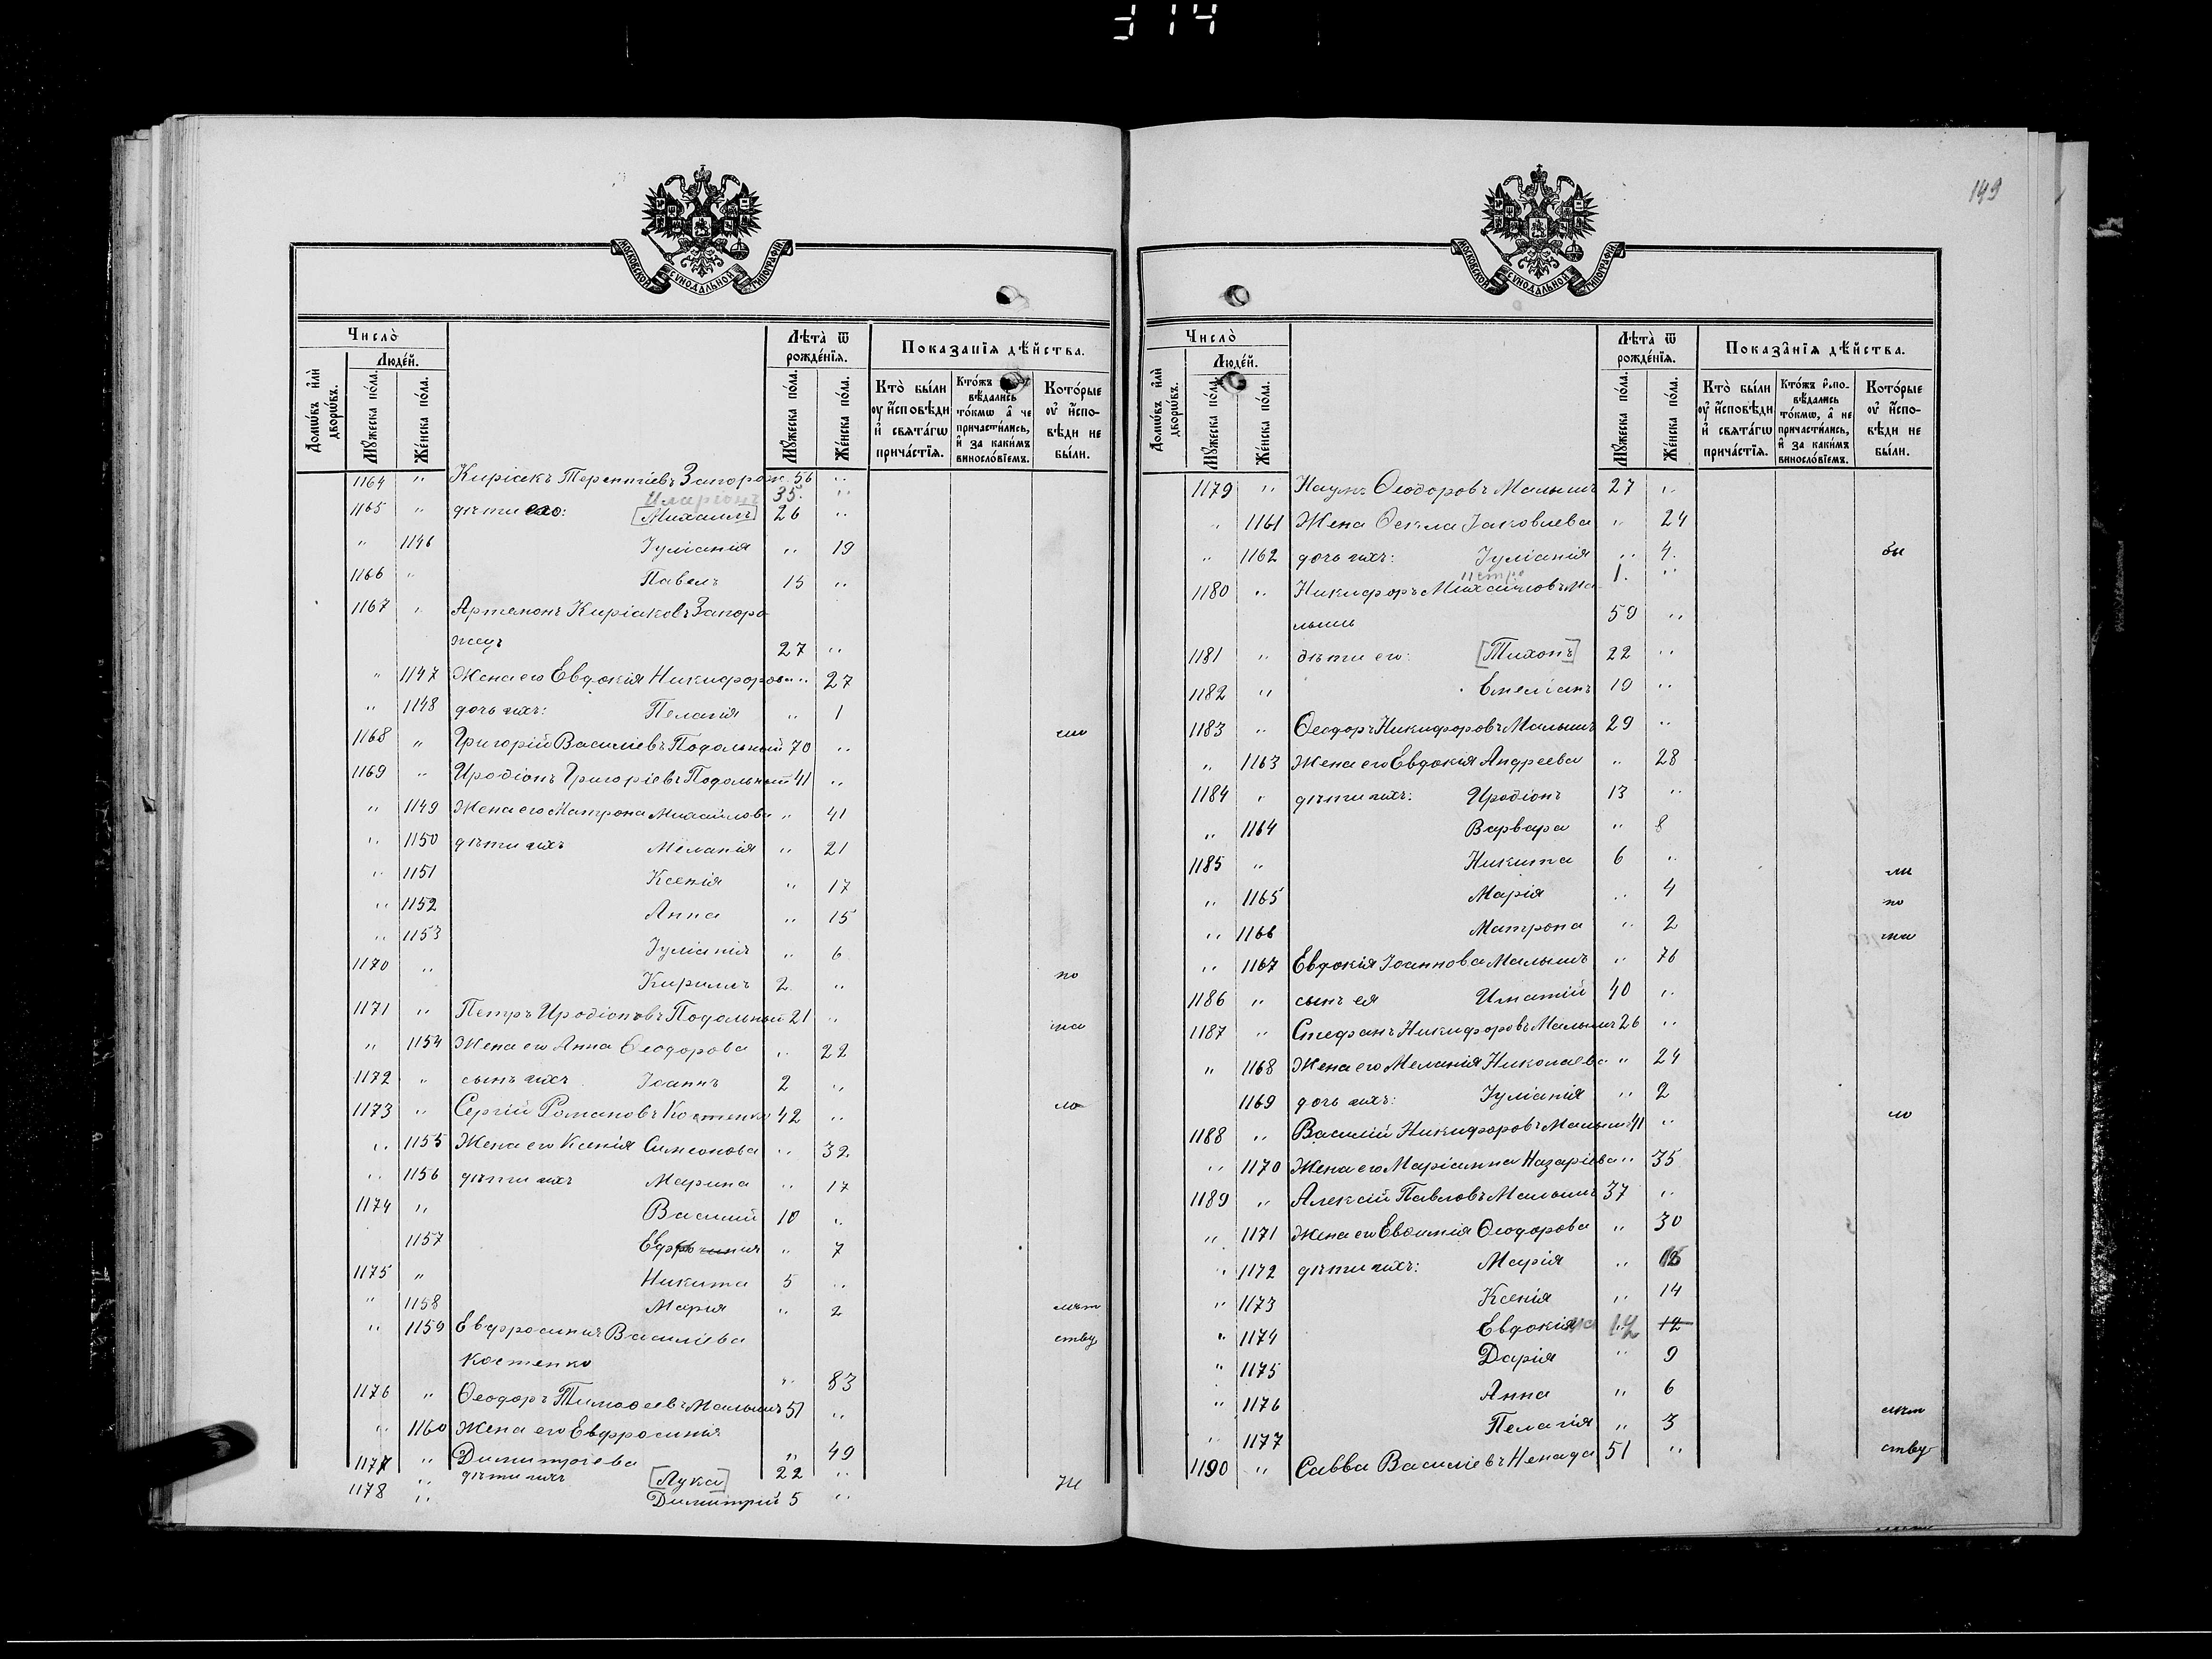 149
МОСКОВСКОЙ СѴНОДАЛЬНОЙ ТИПОГРАФІИ
Число̀
Людéй.
Домѡ́въ и҆лѝ дворѡ́въ.
Мꙋ́жеска пóла.
Жéнска пóла.
Лѣ́та ѿ рождéнїѧ.
Мꙋ́жеска пóла.
Жéнска пóла.
Показа́нїѧ дѣ́йства.
Кто̀ бы́ли ᲂу҆ и҆́сповѣди и҆ свѧта́гѡ прича́стїѧ.
Кто́жъ вѣ́дались то́кмѡ а҆ не причасти́лись, и҆ за каки́мъ винослóвїемъ.
Котóрые ᲂу҆ и҆́сповѣди не бы́ли.
1164 " Киріакъ Терентіевъ Запорож. 56 "
Иларіонъ 35. "
1165 " дѣти его: [Михаилъ] 26 "
" 1146 Іуліанія " 19
1166 " Павелъ 15 "
1167 " Артемонъ Киріаковъ Запоро
жецъ 27 "
" 1147 Жена его Евдокія Никифорова " 27
" 1148 дочь ихъ: Пелагія " 1
1168 " Григорій Василіевъ Подольный 70 "
1169 " Иродіонъ Григоріевъ Подольный 41 "
" 1149 Жена его Матрона Михайлова " 41
" 1150 дѣти ихъ Меланія " 21
" 1151 Ксенія " 17
" 1152 Анна " 15
" 1153 Іуліанія " 6
1170 " Кириллъ 2 " по
1171 " Петръ Иродіоновъ Подольный 21 "
" 1154 Жена его Анна Ѳеодорова " 22
1172 " сынъ ихъ Іоаннъ 2 "
1173 " Сергій Романовъ Костенко 42 " ло
" 1155 Жена его Ксенія Симеонова " 32
" 1156 дѣти ихъ Марина " 17
1174 " Василій 10 "
1157 " 7
1175 " Никита 5 "
" 1158 Марія " 2 лѣт
" 1159 Евфросинія Василіева ству
Костенко " 83
1176 " Ѳеодоръ Тимоѳеевъ Малышъ 51 "
" 1160 Жена его Евфросинія
Димитріева " 49
1177 " дѣти ихъ [Лука] 22 "
1178 " Димитрій 5 "
МОСКОВСКОЙ СѴНОДАЛЬНОЙ ТИПОГРАФІИ
Число̀
Людéй.
Домѡ́въ и҆лѝ дворѡ́въ.
Мꙋ́жеска пóла.
Жéнска пóла.
Лѣ́та ѿ рождéнїѧ.
Мꙋ́жеска пóла.
Жéнска пóла.
Показа́нїѧ дѣ́йства.
Кто̀ бы́ли ᲂу҆ и҆́сповѣди и҆ свѧта́гѡ прича́стїѧ.
Кто́жъ и҆спо-вѣ́дались то́кмѡ, а҆ не причасти́лись, и҆ за каки́мъ винослóвїемъ.
Котóрые ᲂу҆ и҆́сповѣди не бы́ли.
1179 " Наумъ Ѳеодоровъ Малышъ 27 "
" 1161 Жена Ѳекла Іаковлева " 24
" 1162 дочь ихъ: Іуліанія " 4. бы
Петръ 1. "
1180 " Никифоръ Михайловъ Ма-
лышъ 59 "
1181 " дѣти его: [Тихонъ] 22 "
1182 " Емеліанъ 19 "
1183 " Ѳеодоръ Никифоровъ Малышъ 29 "
" 1163 Жена его Евдокія Андреева " 28
1184 " дѣти ихъ: Иродіонъ 13 "
" 1164 Варвара " 8
1185 " Никита 6 " ли
" 1165 Марія " 4 по
" 1166 Матрона " 2
" 1167 Евдокія Іоаннова Малышъ " 76
1186 " сынъ ея Игнатій 40 "
1187 " Стефанъ Никифоровъ Малышъ 26 "
" 1168 Жена его Меланія Николаева " 24
1169 дочь ихъ: Іуліанія " 2
1188 " Василій Никифоровъ Малышъ 41 " ло
" 1170 Жена его Маріанна Назаріева " 35
1189 " Алексій Павловъ Малышъ 37 "
" 1171 Жена его Евѳимія Ѳеодорова " 30
" 1172 дѣти ихъ: Марія " 16
" 1173 Ксенія " 14
" 1174 Евдокія 12
" 1175 Дарія " 9
" 1176 Анна " 6 лѣт
" 1177 Пелагія " 3
1190 " Савва Василіевъ Ненада 51 " ству